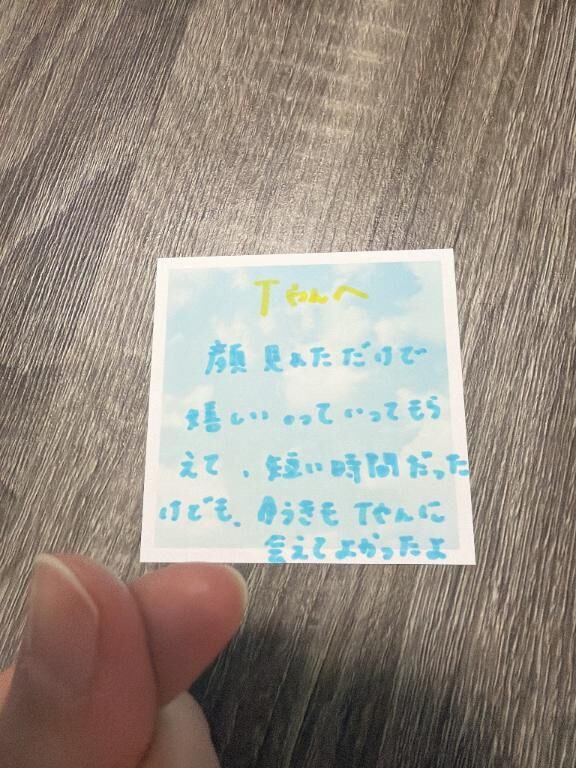 Tゃんへ
顔見れただけで
嬉しいっていってもら
えて、短い時間だった
けども、ゆうきもTゃんに
会えてよかったよ